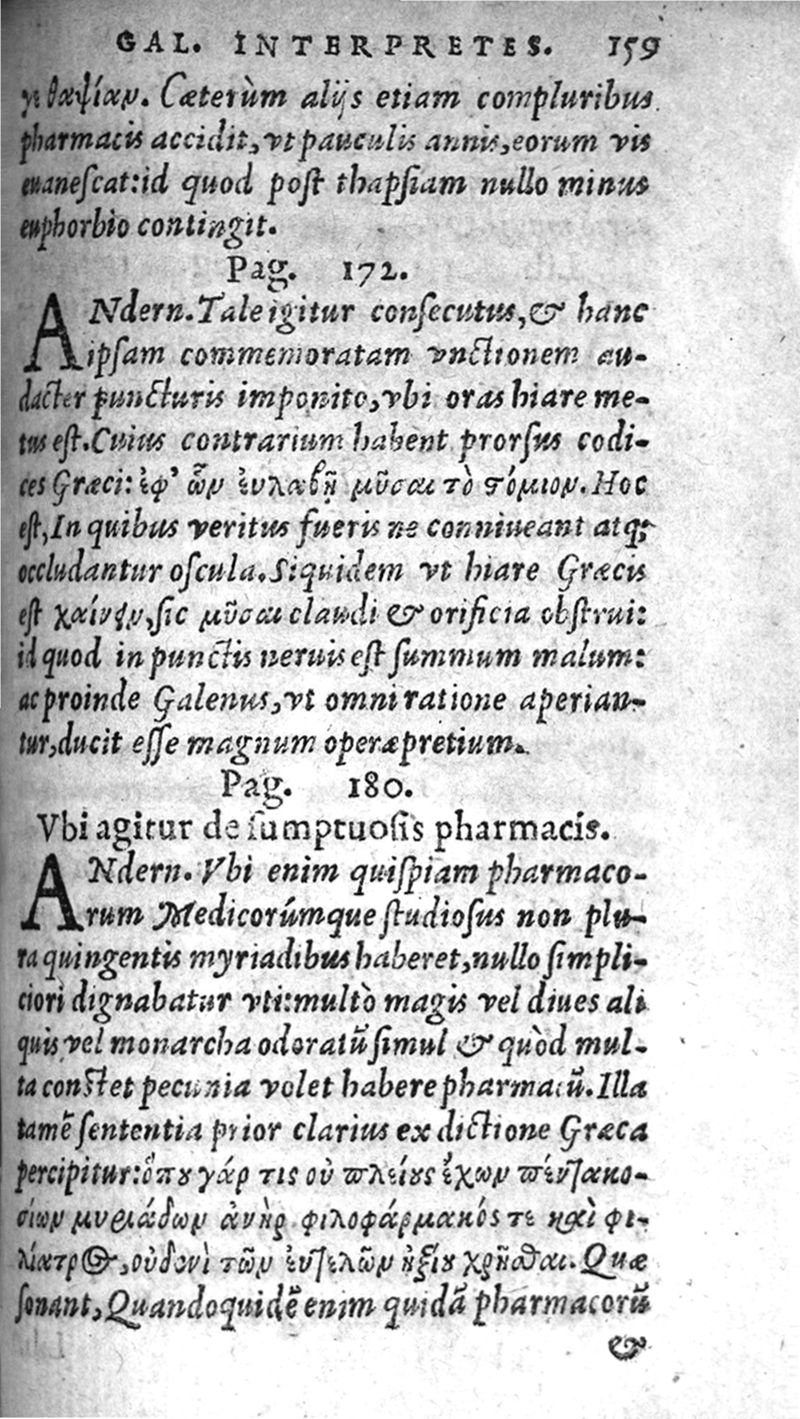 GAL. INTERPRETES. 159
γε θαψίαν. Cæterùm alijs etiam compluribus
pharmacis accidit, vt pauculis annis, eorum vis
euanescat: id quod post thapsiam nullo minus
euphorbio contingit.
Pag. 172.
ANdern. Tale igitur consecutus, & hanc
ipsam commemoratam vnctionem au-
dacter puncturis imponito, vbi oras hiare me-
tus est. Cuius contrarium habent prorsus codi-
ces Græci: ἐφ' ὧν ἐυλαβῆ μῦσαι τὸ στόμιον. Hoc
est, In quibus veritus fueris ne conniueant atq;
occludantur oscula. Siquidem vt hiare Græcis
est χαίνειν, sic μῦσαι claudi & orificia obstrui:
id quod in punctis neruis est summum malum:
ac proinde Galenus, vt omni ratione aperian-
tur, ducit esse magnum operæpretium.
Pag. 180.
Vbi agitur de sumptuosis pharmacis.
ANdern. Vbi enim quispiam pharmaco-
rum Medicorúmque studiosus non plu-
ra quingentis myriadibus haberet, nullo simpli-
ciori dignabatur vti: multò magis vel diues ali
quis vel monarcha odoratũ simul & quòd mul-
ta constet pecunia volet habere pharmacũ. Illa
tamẽ sententia prior clarius ex dictione Græca
percipitur: ὅπου γάρ τις οὐ πλείους ἔχων πεντακο-
σίων μυριάδων ἀνὴρ φιλοφάρμακός τε καὶ φι-
λίατρος, οὐδενὶ τῶν ἐυτελῶν ἠξίου χρῆσθαι. Quæ
sonant, Quandoquidẽ enim quidã pharmacorũ
&